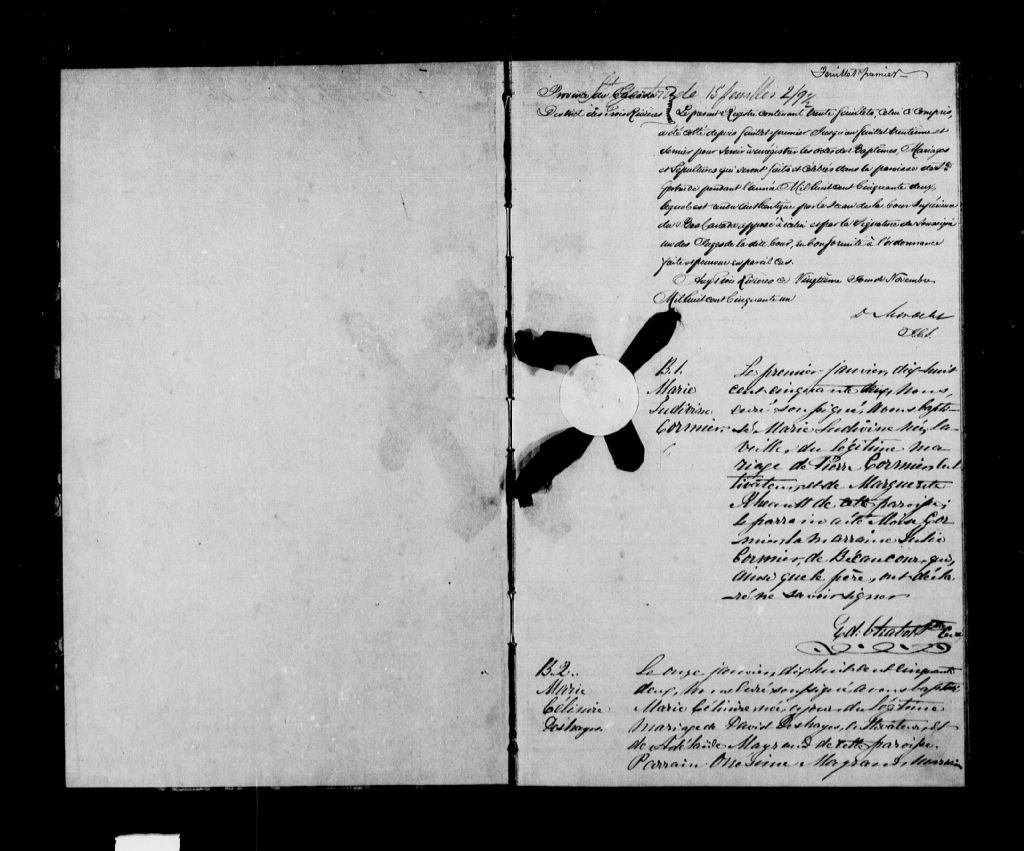 Feuillet premier
Province du Canada
District des Trois Rivières
de 15 feuilles
Le présent Registre contenant trente feuillets, celui ci compris,
a été coté depuis feuillet premier jusqu'au feuillet trentième et
dernier pour servir à enregistrer les actes des Baptêmes, Mariages
et Sépultures qui seront faits et célébrés dans la paroisse de Ste
Gertrude pendant l'année Mil huit cent cinquante deux,
lequel est rendu authentique par le Sceau de la Cour Supérieure
du Bas Canada, apposé à icelui et par la Signature du Soussigné
un des Juges de la dite Cour, en conformité à l'ordonnance
faite et pourvue en pareil cas.
Aux Trois Rivières ce Vingtième Jour de Novembre
Mil huit cent cinquante un
B.1.
Marie
Ludivine
Cormier
Le premier janvier, dix huit
cent cinquante deux, Nous,
curé soussigné, avons bapti-
sé Marie Ludivine née la
veille, du légitime ma-
riage de Pierre Cormier cul
tivateur, et de Marguerite
Rheault de cette paroisse;
le parrain a été Moïse Cor
mier, la marraine Julie
Cormier, de Bécancour, qui,
ainsi que le père, ont décla
ré ne savoir signer
Ed. Chabot Ptre Curé
B.2.
Marie
Célinire
Deshayes.
Le onze janvier, dix huit cent cinquante
deux, Nous curé soussigné, avons baptisé
Marie Célinire née ce jour du légitime
mariage de David Deshayes, cultivateur, et
de Adélaïde Mayrand de cette paroisse.
Parrain Onésime Mayrand, marraine